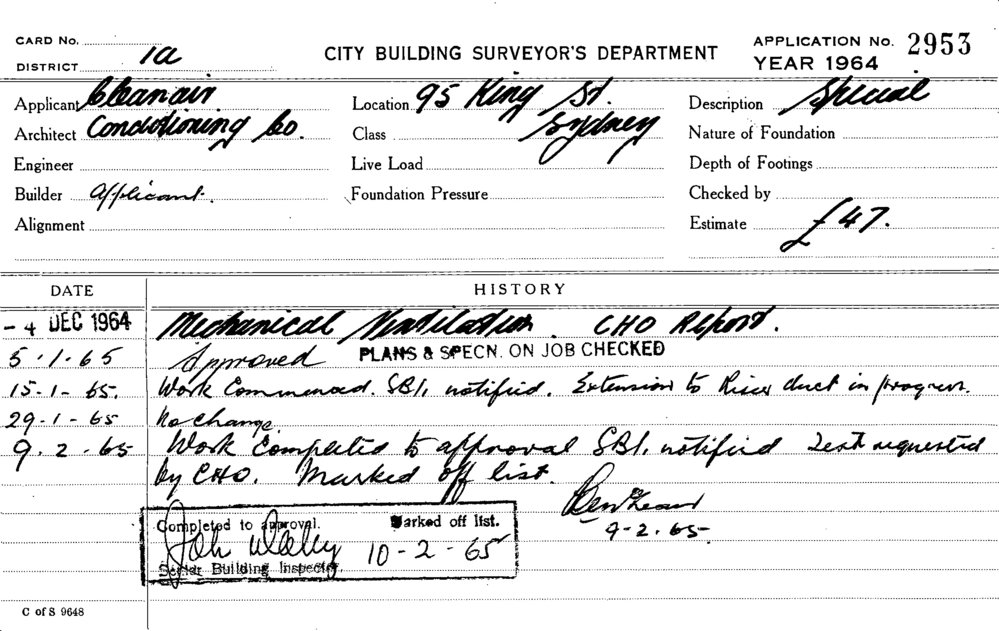 CARD No.
DISTRICT 1a
CITY BUILDING SURVEYOR'S DEPARTMENT
APPLICATION No. 2953
YEAR 1964
Applicant Cleanair Location 95 King St. Description Special
Architect Conditioning Co. Class Sydney Nature of Foundation
Engineer Live Load Depth of Footings
Builder Applicant. Foundation Pressure Checked by
Alignment Estimate £47.
DATE HISTORY
- 4 DEC 1964 Mechanical Ventilation. CHO Report.
5.1.65 Approved PLANS & SPECN. ON JOB CHECKED
15-1-65. Work Commenced. SBI. notified. Extension to Riser duct in progress.
29-1-65 No change.
9.2.65 Work Completed to approval SBI. notified Test requested
by CHO. Marked off list.
9-2.65
Completed to approval. Marked off list.
10-2-65
Senior Building Inspector.
C of S 9648